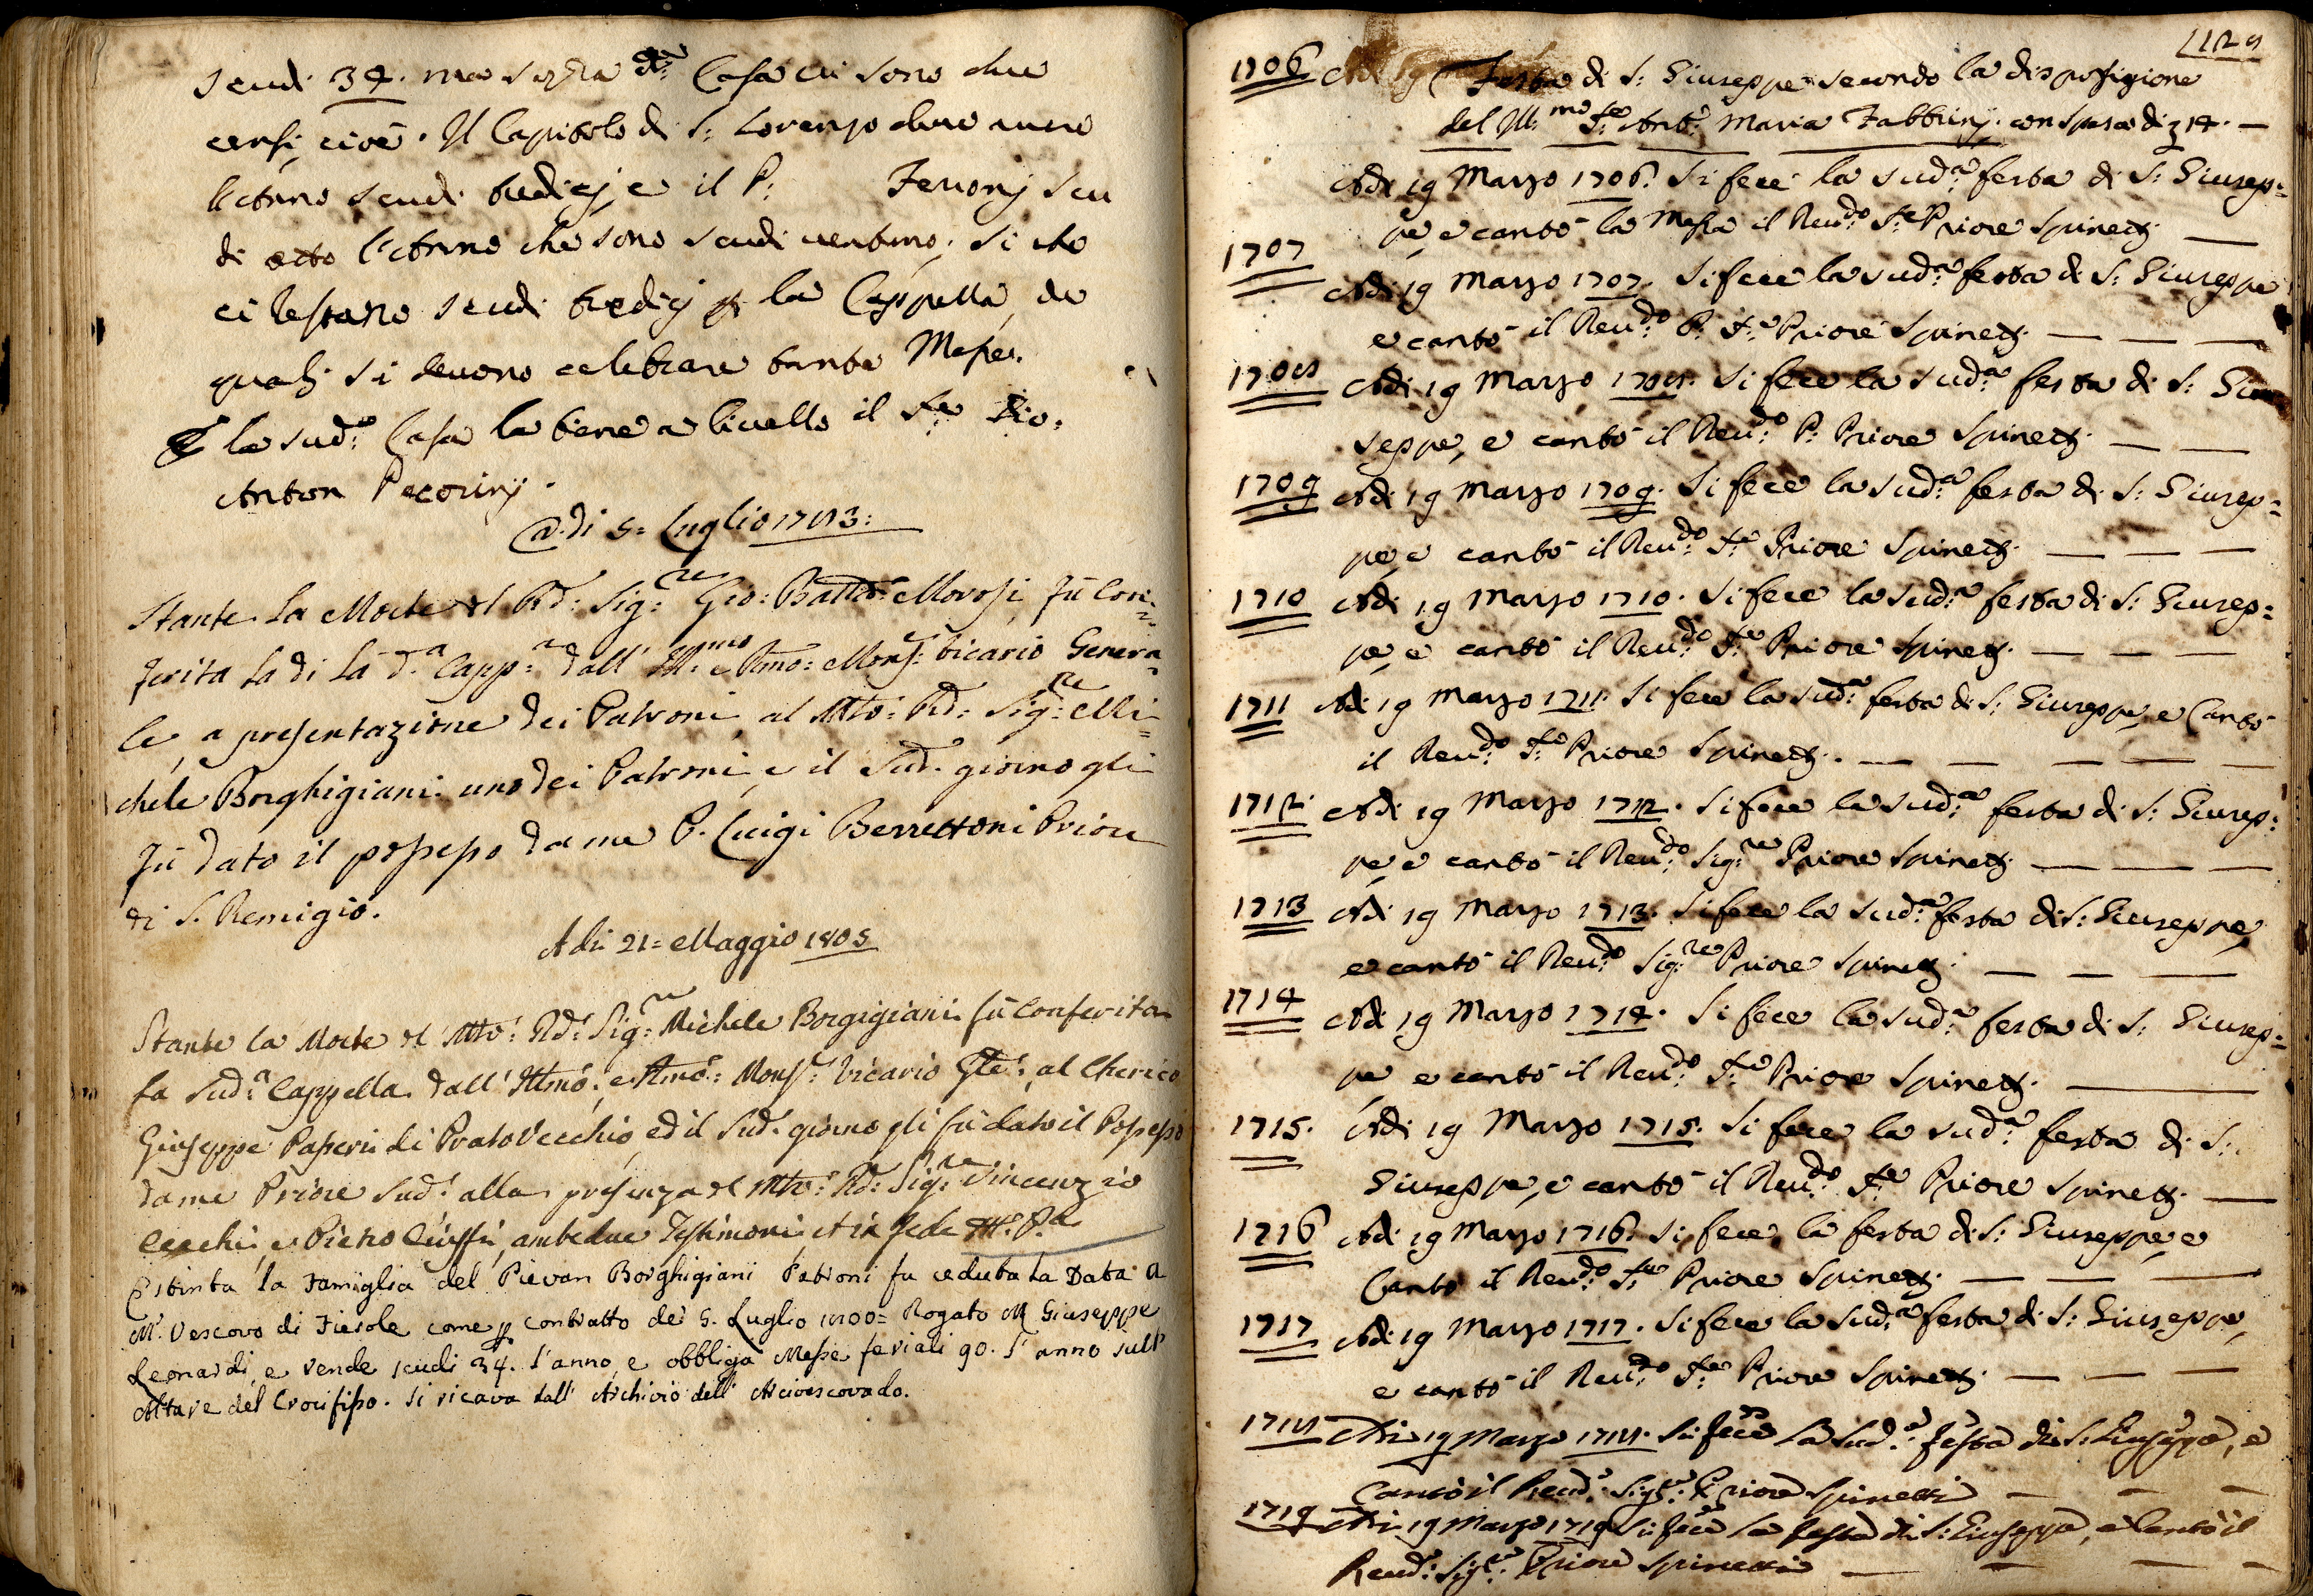 scudi 34. ma sopra d.ª Casa vi sono due
censi, cioè. Il Capitolo di S: Lorenzo deve avere
l'anno scudi tredicj, e il P: Feuonj scu
di otto l'anno che sono scudi ventuno; si che
ci restano scudi tredicj p la Cappella, de
qualj si devono celebrare tante Messe.
E la sud:ª Casa la tiene a livello il S:re Gio:
Anton Pecorinj.
A di 5= Luglio 1783:
Stante la Morte del Rd: Sig:re Gio: Batta: Morosi, fù Con=
ferita la di là d.ª Capp:ª dall' Ill:mo e Rmo: Monsr: Vicario Genera=
le, a presentazione dei Patroni, al Mto: Rd: Sig:re Mi=
chele Borghigiani uno dei Patroni, e il Sud. giorno gli
fù dato il possesso da me P. Luigi Berrettoni Priore
di S. Remigio.
A di 21= Maggio 1805
Stante la Morte del Mto: Rd: Sig:re Michele Borgigiani fù Conferita
la Sud:ª Cappella dall' Illmo: e Rmo: Monsr: Vicario Gle:, al Cherico
Giuseppe Passerii di PratoVecchio, ed il Sud. giorno gli fù dato il Possesso
da me Priore Sud: alla presenza del Mto: Rd: Sig:re Vincenzio
Cecchi, e Pietro Ciuffi, ambedue Testimoni, et in fede M:º P.ª
Estinta la Famiglia del Pievan Borghigiani Patroni fu ceduta la Data a
M.r Vescovo di Fiesole come p contratto de' 5. Luglio 1800= Rogato M Giuseppe
Leonardi, e rende scudi 34. l'anno, e obbliga Messe feriali 90. l'anno sull'
Altare del Crocifisso. Si ricava dall' Archivio dell' Arcivescovado.
128
1706 Adi 19 Festa di S: Giuseppe secondo la disposizione
del Ill:mo S:re Ant:º Maria Fabbrinj. con spesa di 14. —
Adi 19 Marzo 1706. Si fece la sud:ª festa di S: Giusep=
pe e cantò la Messa il Reu:do S:re Priore Spinettj. —
1707
Adi 19 Marzo 1707. Si fece la sud:ª festa di S: Giuseppe
e cantò il Reu:do P. S:re Priore Spinettj. — — —
1708 Adi 19 Marzo 1708. Si fece la sud:ª festa di S: Giu
seppe, e cantò il Reu:do P: Priore Spinettj. — —
1709 Adi 19 Marzo 1709. Si fece la sud:ª festa di S: Giusep=
pe, e cantò il Reu:do S:re Priore Spinettj. — — —
1710 Adi 19 Marzo 1710. Si fece la sud:ª festa di S: Giusep=
pe, e cantò il Reu:do S:re Priore Spinettj. — — —
1711 Adi 19 Marzo 1711. Si fece la sud:ª festa di S: Giuseppe, e Cantò
il Reu:do S:re Priore Spinettj. — — — — —
1712. Adi 19 Marzo 1712. Si fece la sud:ª festa di S: Giusep=
pe, e cantò il Reu:do Sig:re Priore Spinettj. — — —
1713 Adi 19 Marzo 1713. Si fece la sud:ª festa di S: Giuseppe,
e cantò il Reu:do Sig:re Priore Spinettj. — — —
1714
Adi 19 Marzo 1714. Si fece la sud:ª festa di S: Giusep=
pe e cantò il Reu:do S:re Priore Spinettj. —
1715. Adi 19 Marzo 1715. Si fece la sud:ª festa di S:
Giuseppe, e cantò il Reu:do S:re Priore Spinettj. —
1716 Adi 19 Marzo 1716. Si fece la festa di S: Giuseppe, e
Cantò il Reu:do S:re Priore Spinettj. — — —
1717 Adi 19 Marzo 1717. Si fece la Sud:ª festa di S: Giuseppe,
e cantò il Reu:do S:re Priore Spinettj. — — —
1718 Adi 19 Marzo 1718. Si fece la Sud:ª festa di S: Giuseppe, e
Cantò il Reud:º Sig:re Priore Spinetti — — —
1719 Adi 19 Marzo 1719 Si fece la festa di S: Giuseppe, e Cantò il
Reud:º Sig:re Priore Spinetti — — — —